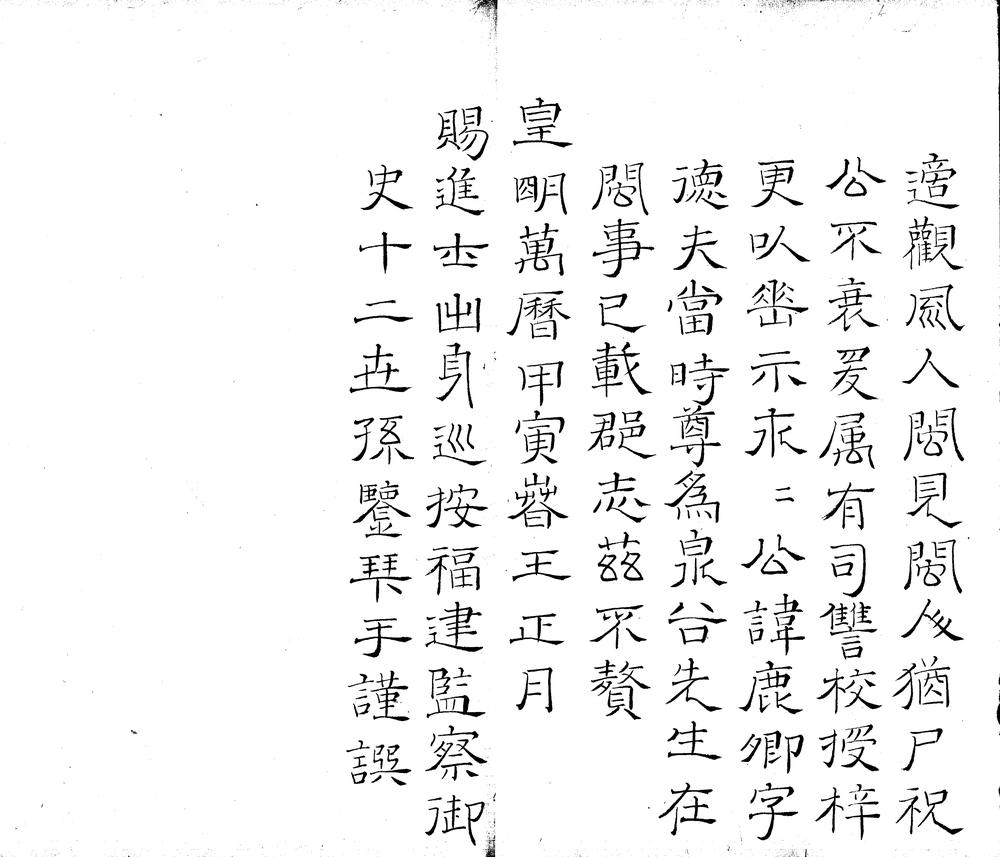 適觀風入閩見閩人猶尸祝
公不衰爰属有司讐校授梓
更以垂示永〻公諱鹿卿字
德夫當時尊爲泉谷先生在
閩事已載郡志茲不贅
皇明萬曆甲寅春王正月
賜進士出身巡按福建監察御
史十二世孫鑒琹手謹譔